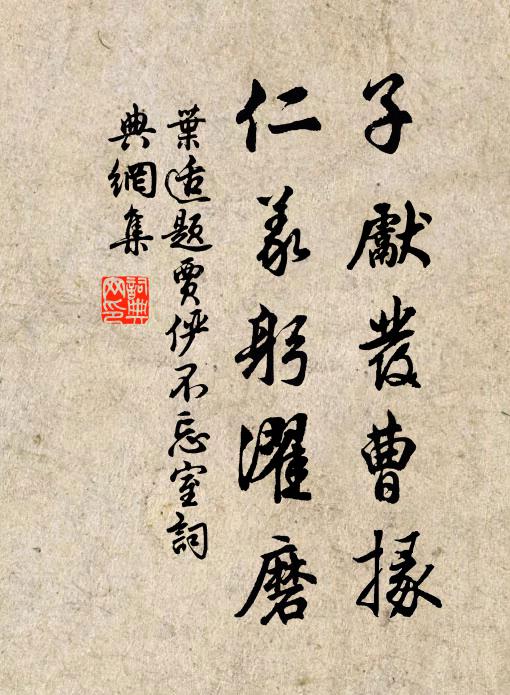 子獻發曹掾
仁義躬濯磨
葉适題賈俨不忘室詞
典網集
詞典網印